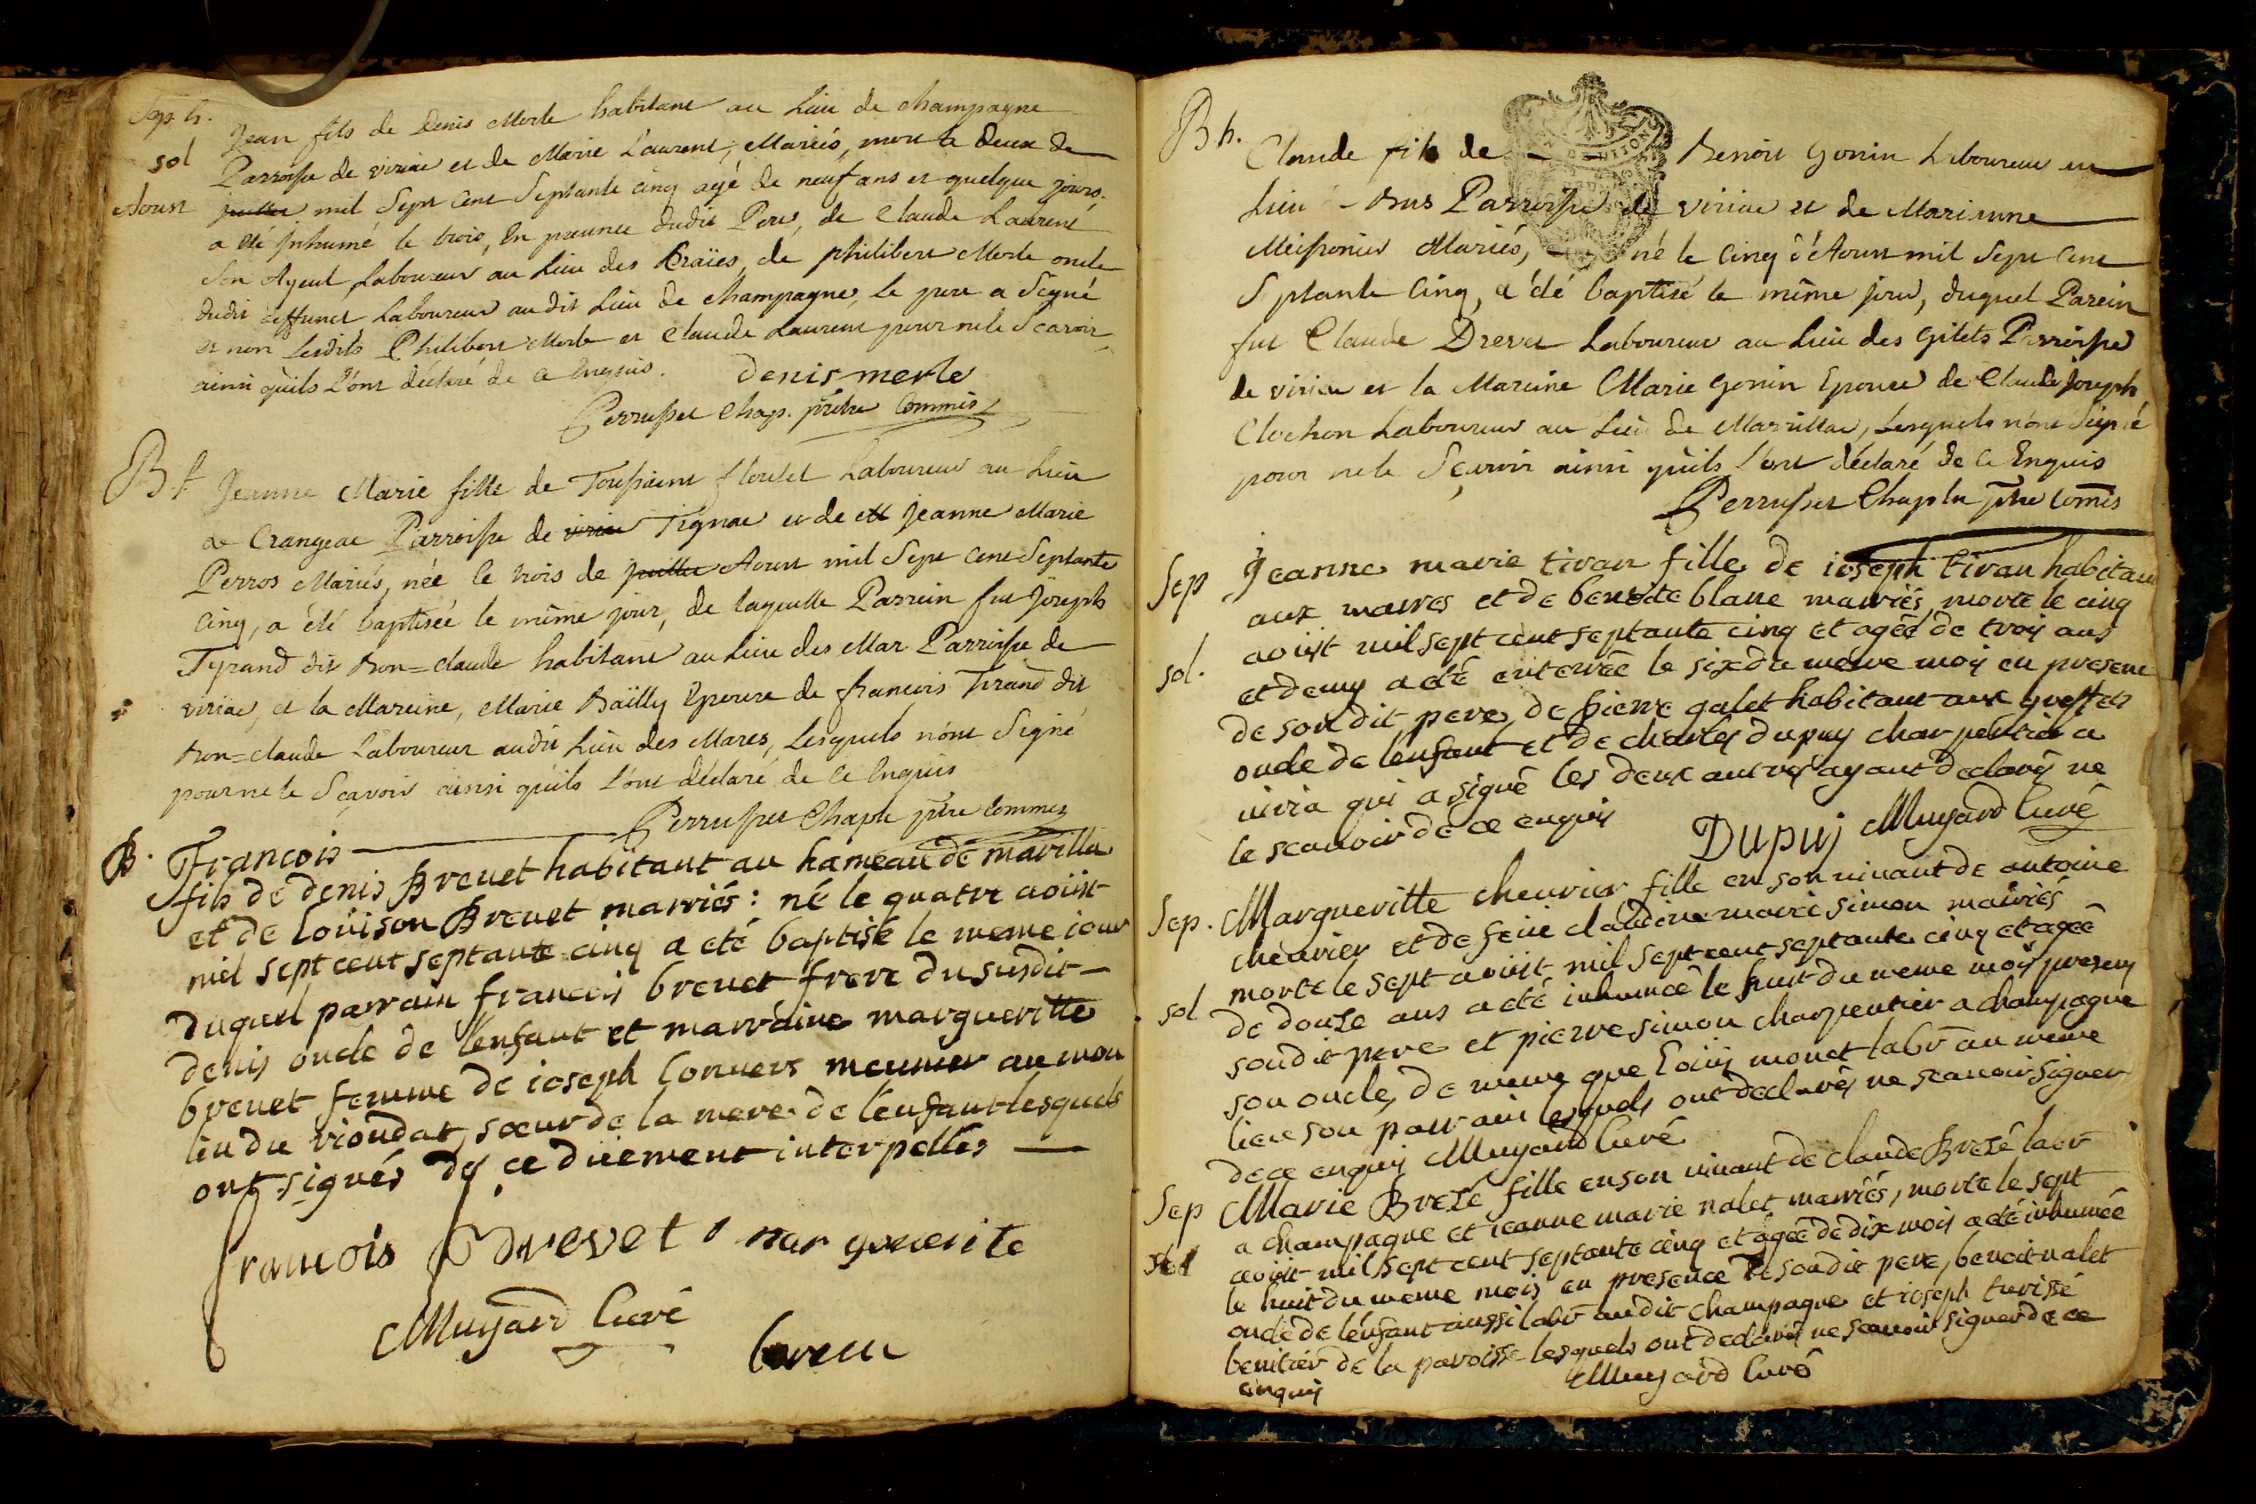 Sep. h.
sol
Aoust
Jean fils de Denis Merle habitant au Lieu de Champagne
Parroisse de viriac et de Marie Laurent, Mariés, mort le Deux de
juillet mil Sept Cent Septante cinq agé de neuf ans et quelque jours.
a été Inhumé le trois, En presence dudit Pere, de Claude Laurent
Son Ayeul Laboureur au Lieu des Braïes, de philibert Merle oncle
dudit deffunct Laboureur audit Lieu de champagne, le pere a Signé
et non Lesdits Philibert Merle et Claude Laurent pour ne le Scavoir
ainsi qu'ils l'ont déclaré de ce Enquis. denis merle
Perrusset Chap. prêtre Commis
B f
Jeanne Marie fille de Toussaint floulet Laboureur au Lieu
de Crangeac Parroisse de viriac Tignac et de M Jeanne Marie
Perros Mariés, née le trois de juillet Aoust mil Sept cent Septante
Cinq, a été baptisée le même jour, de laquelle Parrein fut Joseph
Tyrand dit Bon=claude habitant au Lieu des Mar Parroisse de
viriac, et la Mareine, Marie Bailly Epouse de francois Tirand dit
Bon=claude Laboureur audit Lieu des Mares, Lesquels n'ont Signé
pour ne le Scavoir ainsi qu'ils l'ont déclaré de ce Enquis
Perrusset Chapn prtre Commis
B.
François
fils de denis Brevet habitant au hameau de marilla
et de loüison Brevet marriés: né le quatre aoüst
mil sept cent septante cinq a eté baptisé le meme jour
duquel parrain francois brevet frere du susdit
denis oncle de lenfant et marraine marguerite
brevet femme de ioseph Convers meunier au mou
lin du vioudat, sœur de la mere de lenfant lesquels
ont signés de ce düement interpellés
francois Brevet marguerite
Muyard Curé
brevet
B h.
Claude fils de Benoit Gonin Laboureur au
Lieu Bus Parroisse de viriac et de Marianne
Meissonier Mariés, né le Cinq d'Aoust mil Sept Cent
Septante Cinq, a été baptisé le même jour, duquel Parein
fut Claude Drevet Laboureur au Lieu des Gilets Parroisse
de viriac et la Mareine Marie Gonin Epouse de Claude Joseph
Clochon Laboureur au Lieu de Marrillac, Lesquels n'ont Signé
pour ne le Sçavoir ainsi qu'ils l'ont déclaré de ce Enquis
Perrusset Chapln ptre Comis
Sep
sol.
Jeanne marie tiran fille de ioseph tiran habitant
aux marres et de benoite blanc marriés, morte le cinq
aoüst mil sept cent septante cinq et agée de trois ans
et demy a eté enterrée le six du meme mois en presence
de son dit pere, de pierre galet habitant aux greffets
oncle de lenfant et de charles dupuy charpentier a
viria qui a signé les deux autres ayant declarés ne
le scavoir de ce enquis
Dupuj Muyard Curé
Sep.
sol
Margueritte chevrier fille en son vivant de antoine
chevrier et de feüe claudine marie simon mariés
morte le sept aoüst mil sept cent septante cinq et agée
de douze ans a eté inhumée le huit du meme mois presens
son dit pere et pierre simon charpentier a champagne
son oncle, de meme que Loüis monet labr au meme
lieu son parrain lesquels ont declarés ne scavoir signer
de ce enquis Muyard Curé
Sep
sol
Marie Brezé fille en son vivant de claude Brezé labr
a champagne et jeanne marie nalet marriés, morte le sept
aoüst mil sept cent septante cinq et agée de dix mois a eté inhumée
le huit du meme mois en presence de son dit pere, benoit nalet
oncle de lenfant aussi labr au dit champagne et ioseph turissé
benitier de la paroisse lesquels ont declarés ne scavoir signer de ce
enquis
Muyard Curé